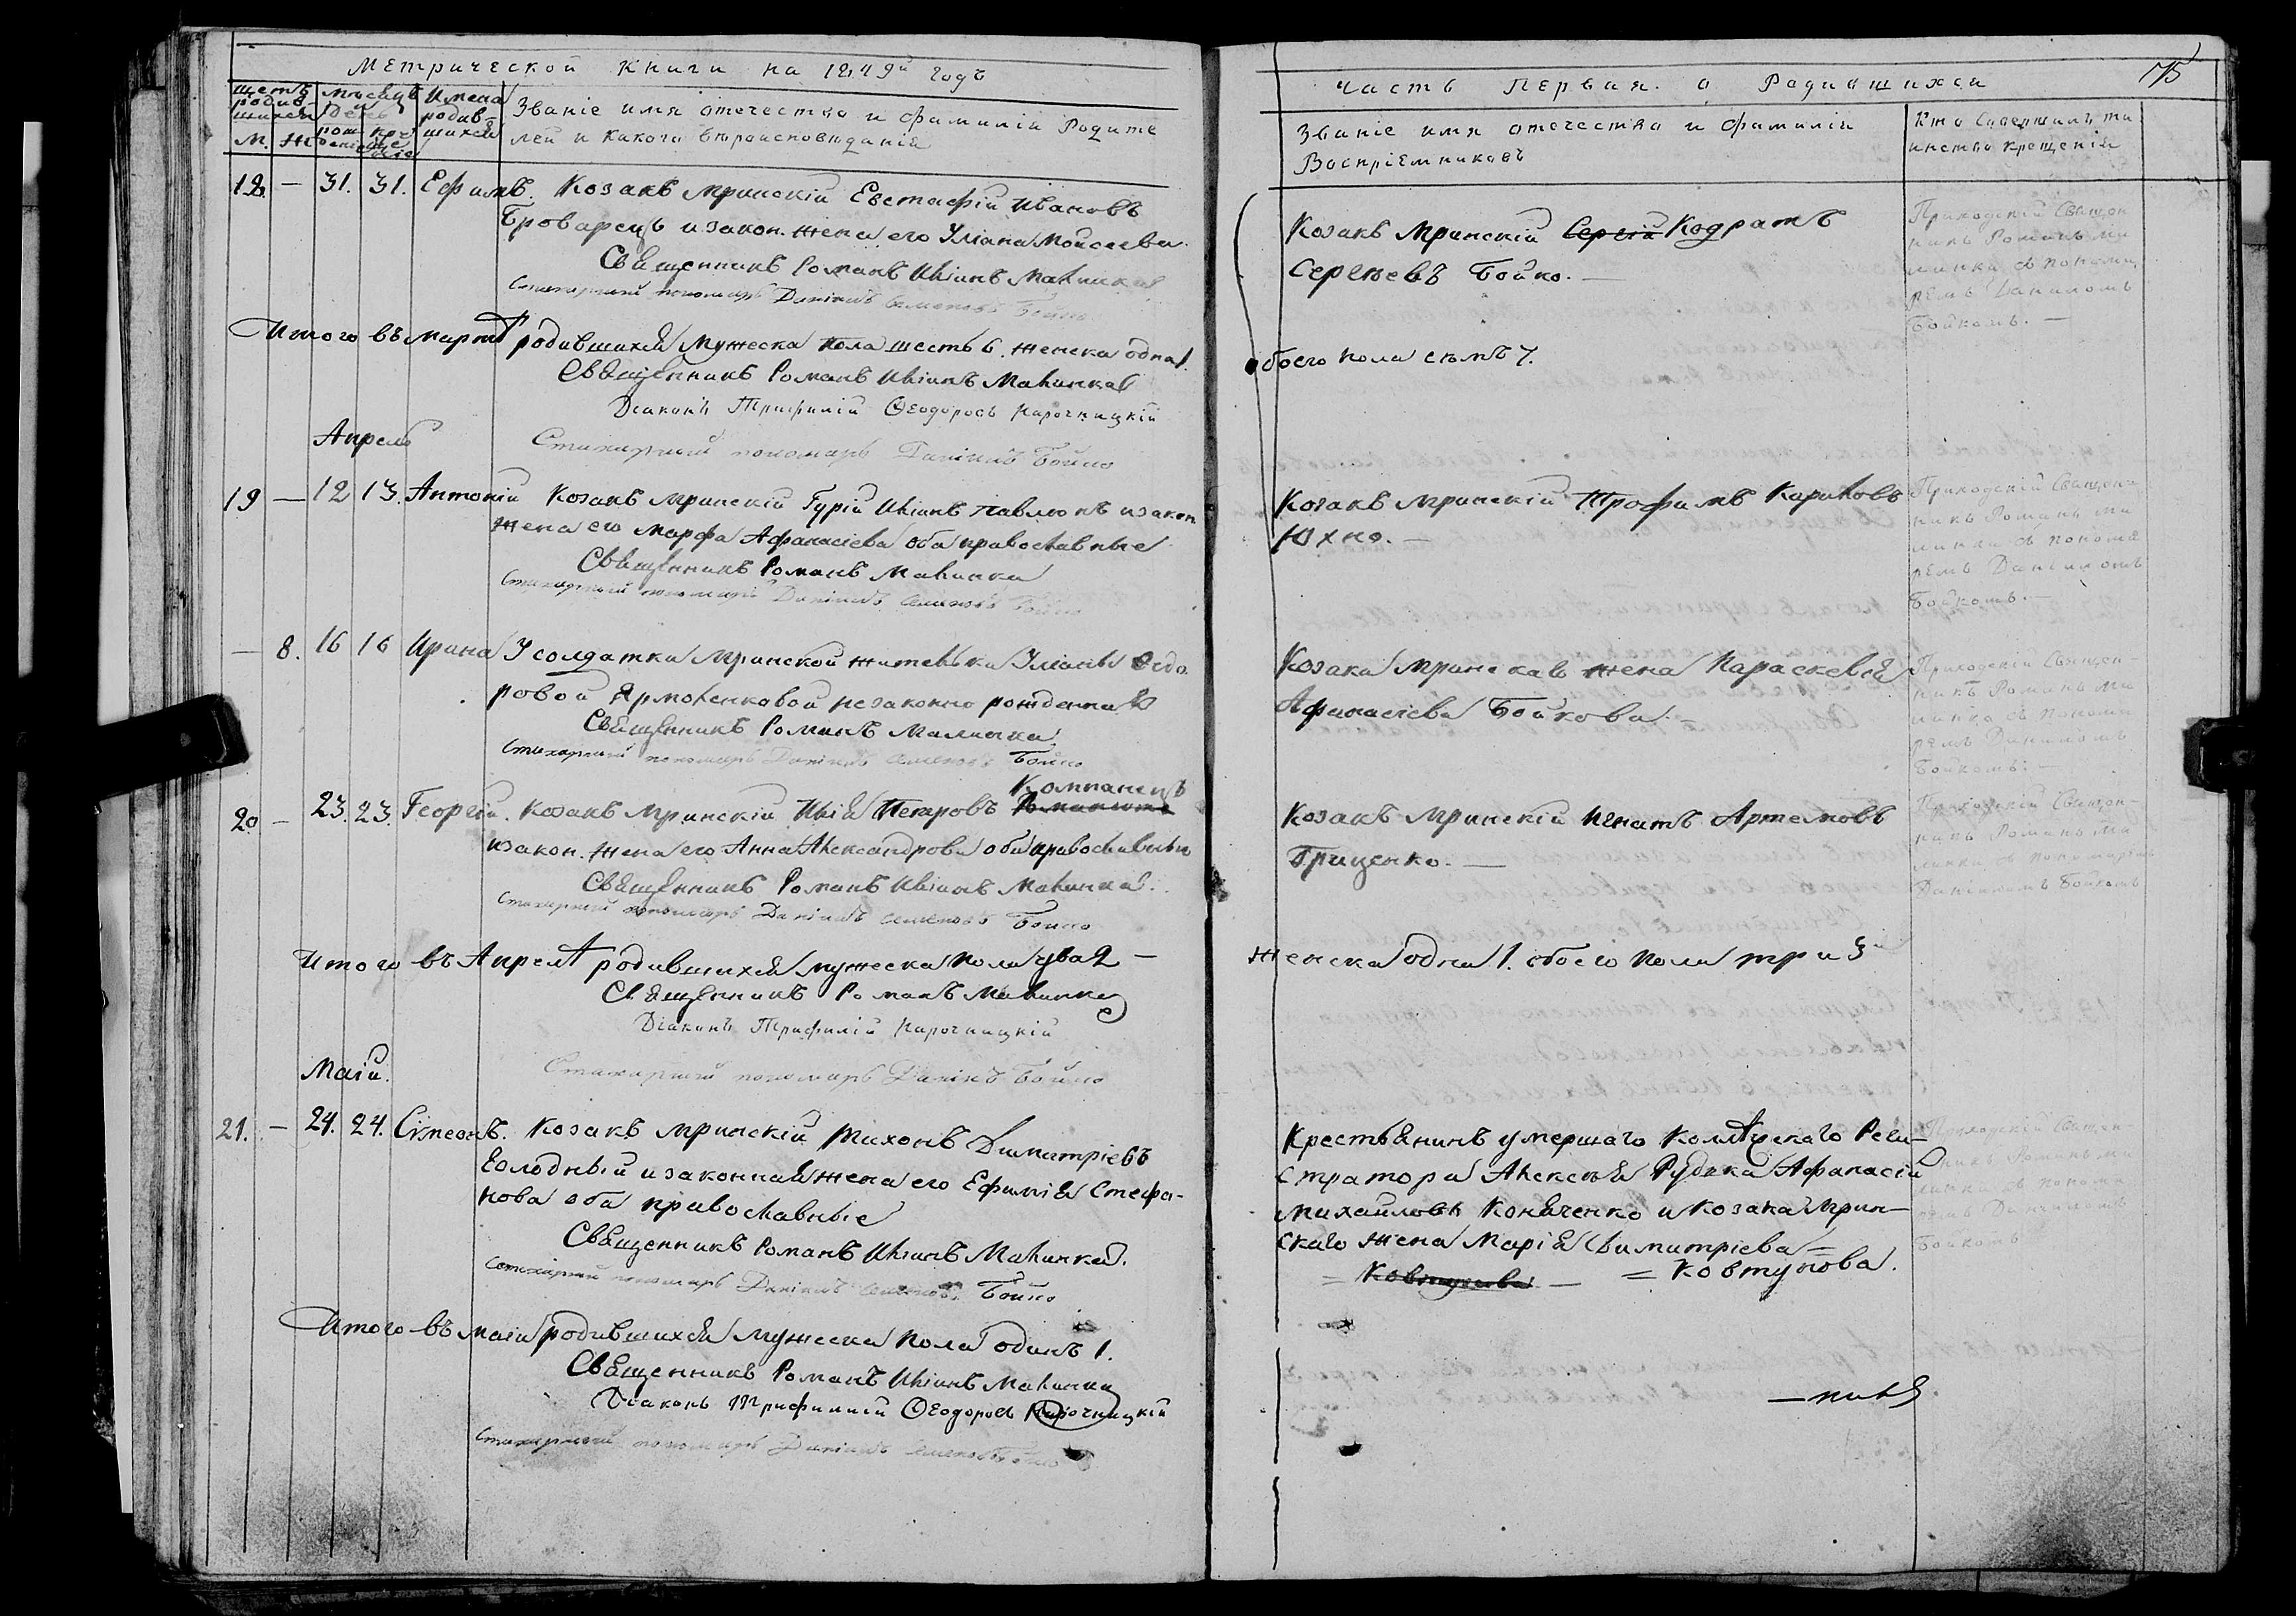 Метрической Книги на 1849й Годъ
щетъ родив-шихся
М. Ж
мѣсяцъ и день
рож дения
кре щения
Имена родив-шихся
Званіе имя отечество и фамилія Родите
лей и какого вѣроисповѣданія
18. — 31. 31. Ефимъ. Козакъ Мринскій Евстафій Ивановъ
Броварецъ и закон. жена его Уліана Моисеева.
Священникъ Романъ Иліинъ Малинка
Стихарный пономарь Даніилъ Семеновъ Бойко
Итого въ мартѣ родившихся мужеска пола шесть 6. женска одна 1.
Священникъ Романъ Иліинъ Малинка
Діаконъ Трифилій Ѳеодоровъ Нарочницкій
Апрель
Стихарный пономарь Даніилъ Бойко
19 — 12 13. Антоній Козакъ Мринскій Гурій Иліинъ Павлюкъ и закон
жена его Марфа Афанасіева оба православные
Священникъ Романъ Малинка
Стихарный пономарь Даніилъ Семеновъ Бойко
— 8. 16 16 Ирина У солдатки Мринской жительки Уліаны Федо
ровой Ярмоленковой незаконно рожденна
Священникъ Романъ Малинка
Стихарный пономарь Даніилъ Семеновъ Бойко
Компанецъ
20 — 23. 23. Георгій. Козакъ Мринскій Илія Петровъ
и закон. жена его Анна Александрова оба православные
Священникъ Романъ Иліинъ Малинка.
Стихарный пономарь Даніилъ Семеновъ Бойко
Итого въ Апрелѣ родившихся мужеска пола два 2 —
Священникъ Романъ Малинка
Діаконъ Трифилій Нарочницкій
Маій.
Стихарный пономарь Даніилъ Бойко
21. — 24. 24. Сімеонъ. Козакъ Мринскій Тихонъ Димитріевъ
Голодный и законная жена его Ефимія Стефа-
нова оба православные
Священникъ Романъ Иліинъ Малинка.
Стихарный пономарь Даніилъ Семеновъ Бойко
Итого въ маіи родившихся мужеска пола одинъ 1.
Священникъ Романъ Иліинъ Малинка
Діаконъ Трифиллій Ѳеодоровъ Нарочницкій
Стихарный пономарь Даніилъ Семеновъ Бойко
Часть Первая. о Родившихся
75
Званіе имя отечество и фамилія
Воспріемниковъ
Кто Совершилъ та
инство крещенія
Козакъ Мринскій Сергій Кодратъ
Сергѣевъ Бойко. —
Приходскій Священ
никъ Романъ Ма
линка съ понома
ремъ Даниломъ
Бойкомъ. —
обоего пола семъ 7.
Козакъ Мринскій Трофимъ Кариловъ
Юхно. —
Приходскій Священ-
никъ Романъ Ма
линка съ понома
ремъ Даніиломъ
Бойкомъ. —
Козака Мринскаго жена Параскевія
Афанасіева Бойкова. —
Приходскій Священ-
никъ Романъ Ма
линка съ понома
ремъ Даниломъ
Бойкомъ: —
Козакъ Мринскій Игнатъ Артемовъ
Гриценко. —
Приходскій Священ-
никъ Романъ Ма
линка съ пономаремъ
Даніиломъ Бойкомъ
Женска одна 1. обоего пола три 3
Крестьянинъ умершаго Коллѣжскаго Реги-
стратора Алексѣя Рудека Афанасій
Михайловъ Коняченко и козака Мрин-
скаго жена Марія Димитріева —
= Ковтунова — = Ковтунова.
Приходскій Священ-
никъ Романъ Ма
линка съ понома
ремъ Даніиломъ
Бойкомъ